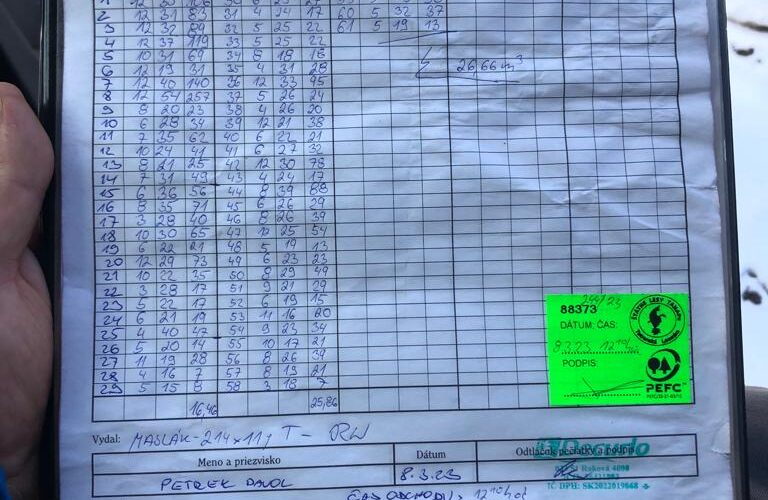 2 12 31 83 31 4 24 17 60 5 32 37
3 12 32 89 32 5 25 22 61 5 19 13
4 12 37 119 33 5 25 22
5 10 31 69 34 8 18 18
6 12 19 31 35 4 31 28 26,66 m³
7 12 40 140 36 12 33 95
8 12 54 257 37 5 26 24
9 8 20 23 38 4 26 20
10 6 28 34 39 12 21 38
11 7 35 62 40 6 22 21
12 10 24 41 41 6 27 32
13 8 21 25 42 12 30 78
14 7 31 49 43 4 24 17
15 6 36 56 44 8 39 88
16 8 35 71 45 6 26 29
17 3 28 40 46 8 26 39
18 10 30 65 47 12 25 54
19 6 22 21 48 5 19 13
20 12 29 73 49 6 23 23
21 10 22 35 50 8 29 49
22 3 28 17 51 9 21 29
23 5 22 17 52 6 19 15
24 6 21 19 53 11 16 20
25 4 40 47 54 9 23 34
26 5 20 14 55 10 17 21
27 11 19 28 56 8 26 39
28 4 16 7 57 8 19 21
29 5 15 8 58 3 18 7
16,46 25,86
88373
DÁTUM: ČAS:
8.3.23 12 10
PODPIS:
ŠTÁTNE LESY TANAPU
PEFC
Vydal: MASLÁK - 214 x 11 j T - RW
Meno a priezvisko Dátum Odtláčok pečiatky a podpis
PETREK 8.3.23
IČ DPH: SK2022019868
ČAS ODCHODU: 12 10 hod